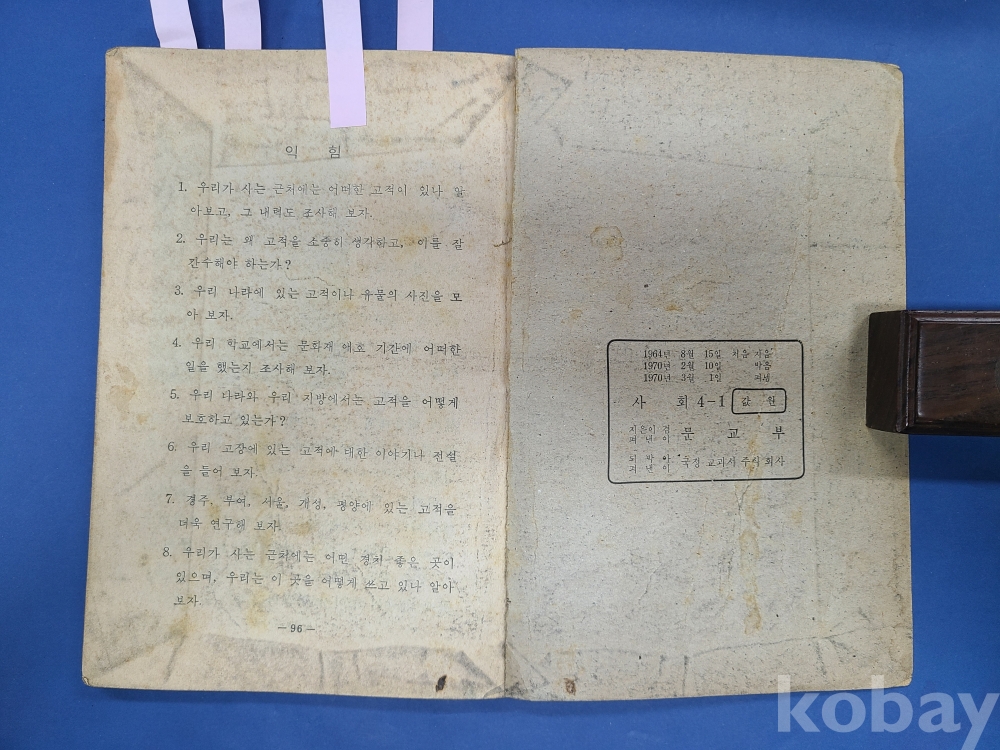 익 힘
1. 우리가 사는 근처에는 어떠한 고적이 있나 알
아보고, 그 내력도 조사해 보자.
2. 우리는 왜 고적을 소중히 생각하고, 이를 잘
간수해야 하는가?
3. 우리 나라에 있는 고적이나 유물의 사진을 모
아 보자.
4. 우리 학교에서는 문화재 애호 기간에 어떠한
일을 했는지 조사해 보자.
5. 우리 나라와 우리 지방에서는 고적을 어떻게
보호하고 있는가?
6. 우리 고장에 있는 고적에 대한 이야기나 전설
을 들어 보자.
7. 경주, 부여, 서울, 개성, 평양에 있는 고적을
더욱 연구해 보자.
8. 우리가 사는 근처에는 어떤 경치 좋은 곳이
있으며, 우리는 이 곳을 어떻게 쓰고 있나 알아
보자.
— 96 —
1964년 8월 15일 처음 지음
1970년 2월 10일 박음
1970년 3월 1일 펴냄
사 회 4-1 값 원
지은이 겸
펴낸이 문 교 부
되박아
펴낸이 국정 교과서 주식 회사
kobay